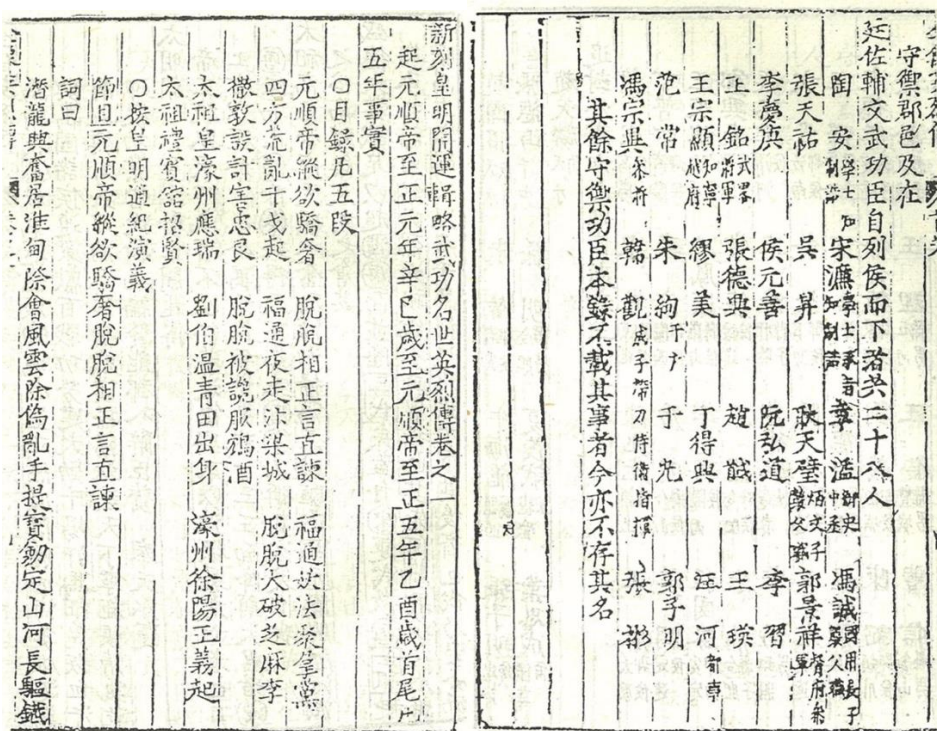 守禦郡邑及在
廷佐輔文武功臣自列侯而下者共二十八人
陶 安 學士知制誥 宋濂 學士承旨知制誥 章溢 御史中丞 馮誠 國用長子襲父職
張天祐 吳昇 耿天璧 炳文子襲父職 郭景祥
李慶庚 侯元善 阮弘道 李習
王銘 張德興 趙 王瑛
王宗顯 知寧越府 繆美 丁得興 汪河
范常 朱 于光 郭子明
馮宗異 參將 韓觀 成子帶刀侍衛指揮 張彬
其餘守禦功臣本錄不載其事者今亦不存其名
新刻皇明開運輯略武功名世英烈傳卷之一
起元順帝至正元年辛巳歲至元順帝至正五年乙酉歲首尾凡
五年事實
○目錄凡五段
元順帝縱欲驕奢 脫脫相正言直諫 福通妖法聚
四方荒亂干戈起 福通夜走汴梁城 脫脫大破芝麻李
撒敦設計害忠良 脫脫被譖服鴆酒
太祖皇濠州應瑞 劉伯溫青田出身 濠州徐陽正義起
太祖禮賓舘招賢
○按皇明通紀演義
節目元順帝縱欲驕奢脫脫相正言直諫
詞曰
潛龍興奮居淮甸際會風雲除偽亂手提寶劍定山河長驅鐵